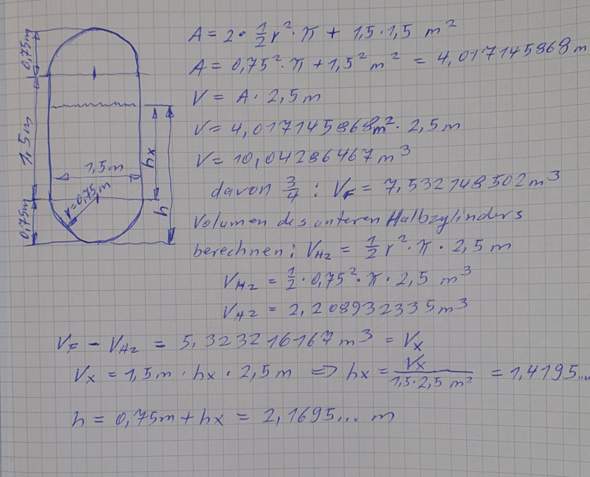 0,75m
1,5m
0,75m
1,5m
r=0,75m
hx
h
A = 2 · 1/2 r² · π + 1,5 · 1,5 m²
A = 0,75² · π + 1,5² m² = 4,017145868 m
V = A · 2,5m
V = 4,017145868m² · 2,5m
V = 10,04286467 m³
davon 3/4 : V_F = 7,532148502 m³
Volumen des unteren Halbzylinders
berechnen: V_HZ = 1/2 r² · π · 2,5 m
V_HZ = 1/2 · 0,75² · π · 2,5 m³
V_HZ = 2,208932335 m³
V_F − V_HZ = 5,323216167 m³ = V_x
V_x = 1,5m · hx · 2,5m ⇒ hx = V_x / 1,5·2,5 m² = 1,4195...m
h = 0,75m + hx = 2,1695... m